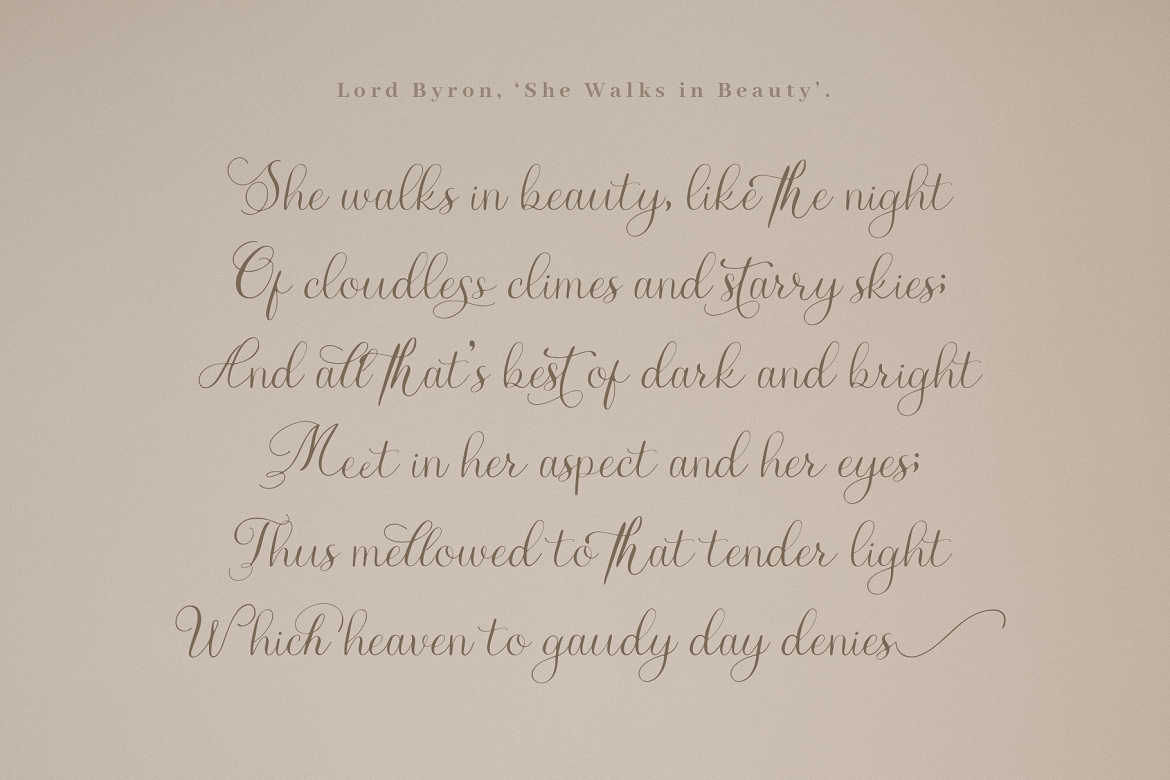 Lord Byron, ‘She Walks in Beauty’.
She walks in beauty, like the night
Of cloudless climes and starry skies;
And all that’s best of dark and bright
Meet in her aspect and her eyes;
Thus mellowed to that tender light
Which heaven to gaudy day denies